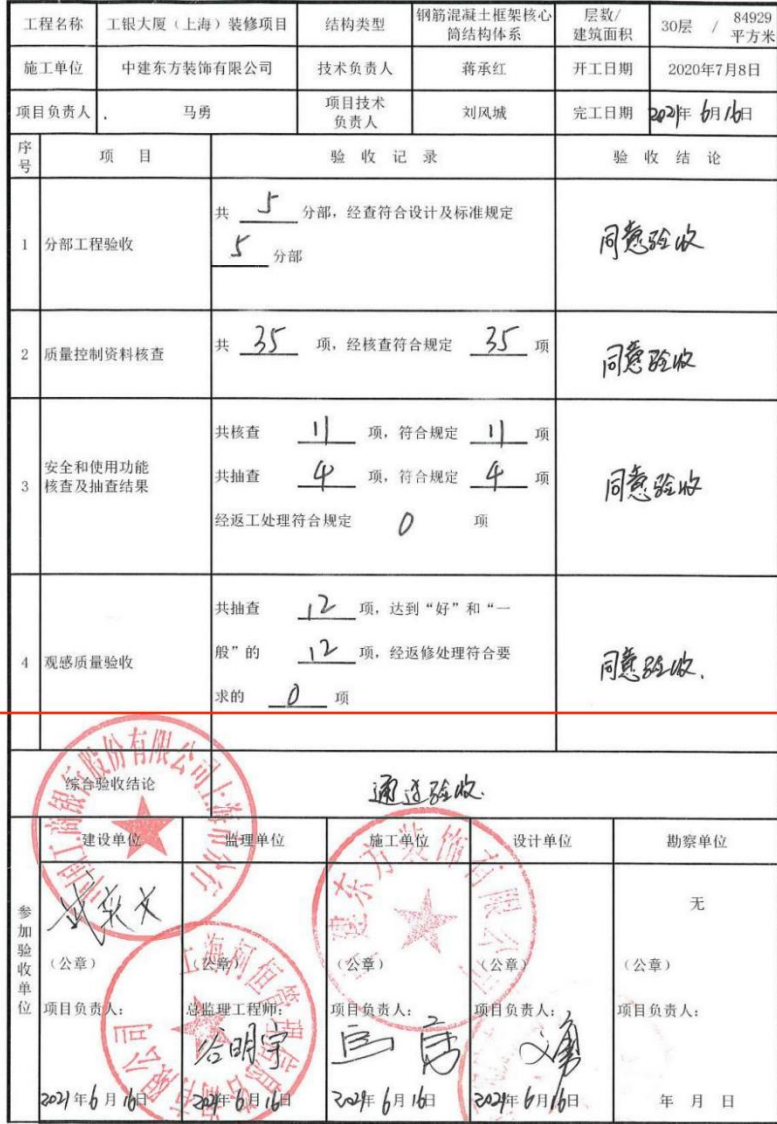 工程名称 工银大厦（上海）装修项目 结构类型 钢筋混凝土框架核心筒结构体系 层数/建筑面积 30层 / 84929平方米
施工单位 中建东方装饰有限公司 技术负责人 蒋承红 开工日期 2020年7月8日
项目负责人 马勇 项目技术负责人 刘风城 完工日期 2021年6月16日
序号 项 目 验 收 记 录 验 收 结 论
1 分部工程验收
共 5 分部，经查符合设计及标准规定
5 分部
同意验收
2 质量控制资料核查 共 35 项，经核查符合规定 35 项 同意验收
3 安全和使用功能
核查及抽查结果
共核查 11 项，符合规定 11 项
共抽查 4 项，符合规定 4 项
经返工处理符合规定 0 项
同意验收
4 观感质量验收
共抽查 12 项，达到“好”和“一
般”的 12 项，经返修处理符合要
求的 0 项
同意验收.
综合验收结论 通过验收.
参加验收单位
建设单位 监理单位 施工单位 设计单位 勘察单位
无
（公章） （公章） （公章） （公章）
项目负责人： 总监理工程师： 项目负责人： 项目负责人： 项目负责人：
谷明宇
2021年6月16日 2021年6月16日 2021年6月16日 2021年6月16日 年 月 日